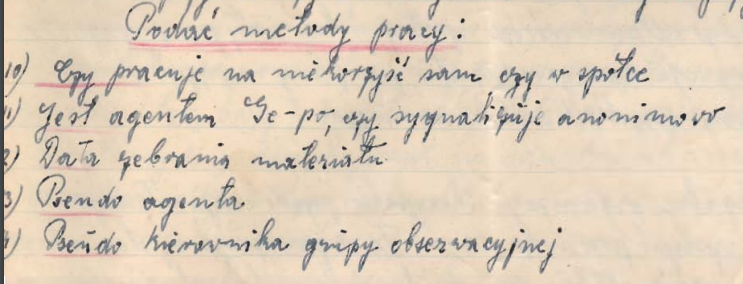 Podać metody pracy:
10) Czy pracuje na niekorzyść sam czy w spółce
11) Jest agentem Ge-po, czy sygnalizuje anonimowo
2) Data zebrania materiału
3) Pseudo agenta
4) Pseudo kierownika grupy obserwacyjnej